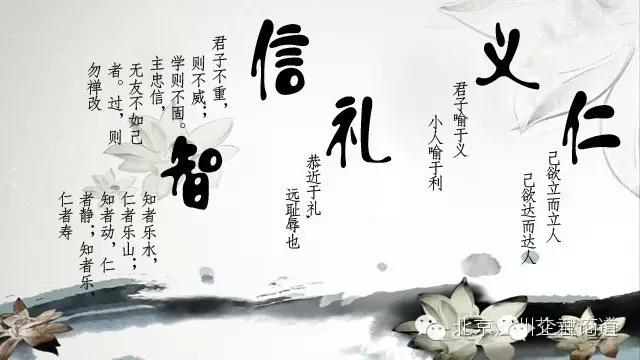 仁
己欲立而立人
己欲达而达人
义
君子喻于义
小人喻于利
礼
恭近于礼,
远耻辱也
信
君子不重,
则不威;
学则不固。
主忠信,
无友不如己
者。过,则
勿禅改
智
知者乐水,
仁者乐山;
知者动,仁
者静;知者乐,
仁者寿
北京